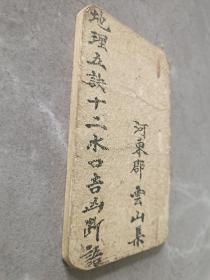 地理五訣十二水口吉凶斷語
河東郡 雲山集